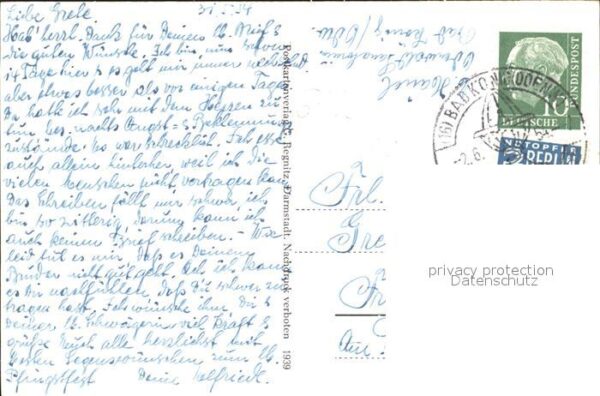 31.5.54
Liebe Grete.
Hab' herzl. Dank für Deinen lb. Brief &
die guten Wünsche. Ich bin nun schon
14 Tage hier & es geht mir immer
aber etwas besser als vor einigen Tagen
Da hatte ich sehr mit dem Herzen zu
tun bes. nachts Angst = & Beklemmungs
zustände. Es war schrecklich. Ich esse
auch allein hinterher, weil ich die
vielen Menschen nicht vertragen kann
Das Schreiben fällt mir schwer, ich
bin so zittrig, darum kann ich
auch keinen Brief schreiben. - Wie
leid tut es mir, daß es Deinem
Bruder nicht gut geht. Ach ich kann
es so nachfühlen, daß Du schwer zu
tragen hast. Ich wünsche ihm, Dir &
Deiner lb. Schwägerin viel Kraft &
grüße Euch alle herzlichst mit
besten Segenswünschen zum lb.
Pfingstfest Deine
Postkartenverlag A. Regnitz, Darmstadt. Nachdruck verboten 1939
Bad König/Odw.
(16) BAD KÖNIG ODENW
-2.6.54
10
DEUTSCHE
BUNDESPOST
NOTOPFER
2 BERLIN
Frl.
Gre
Fr
An
privacy protection
Datenschutz